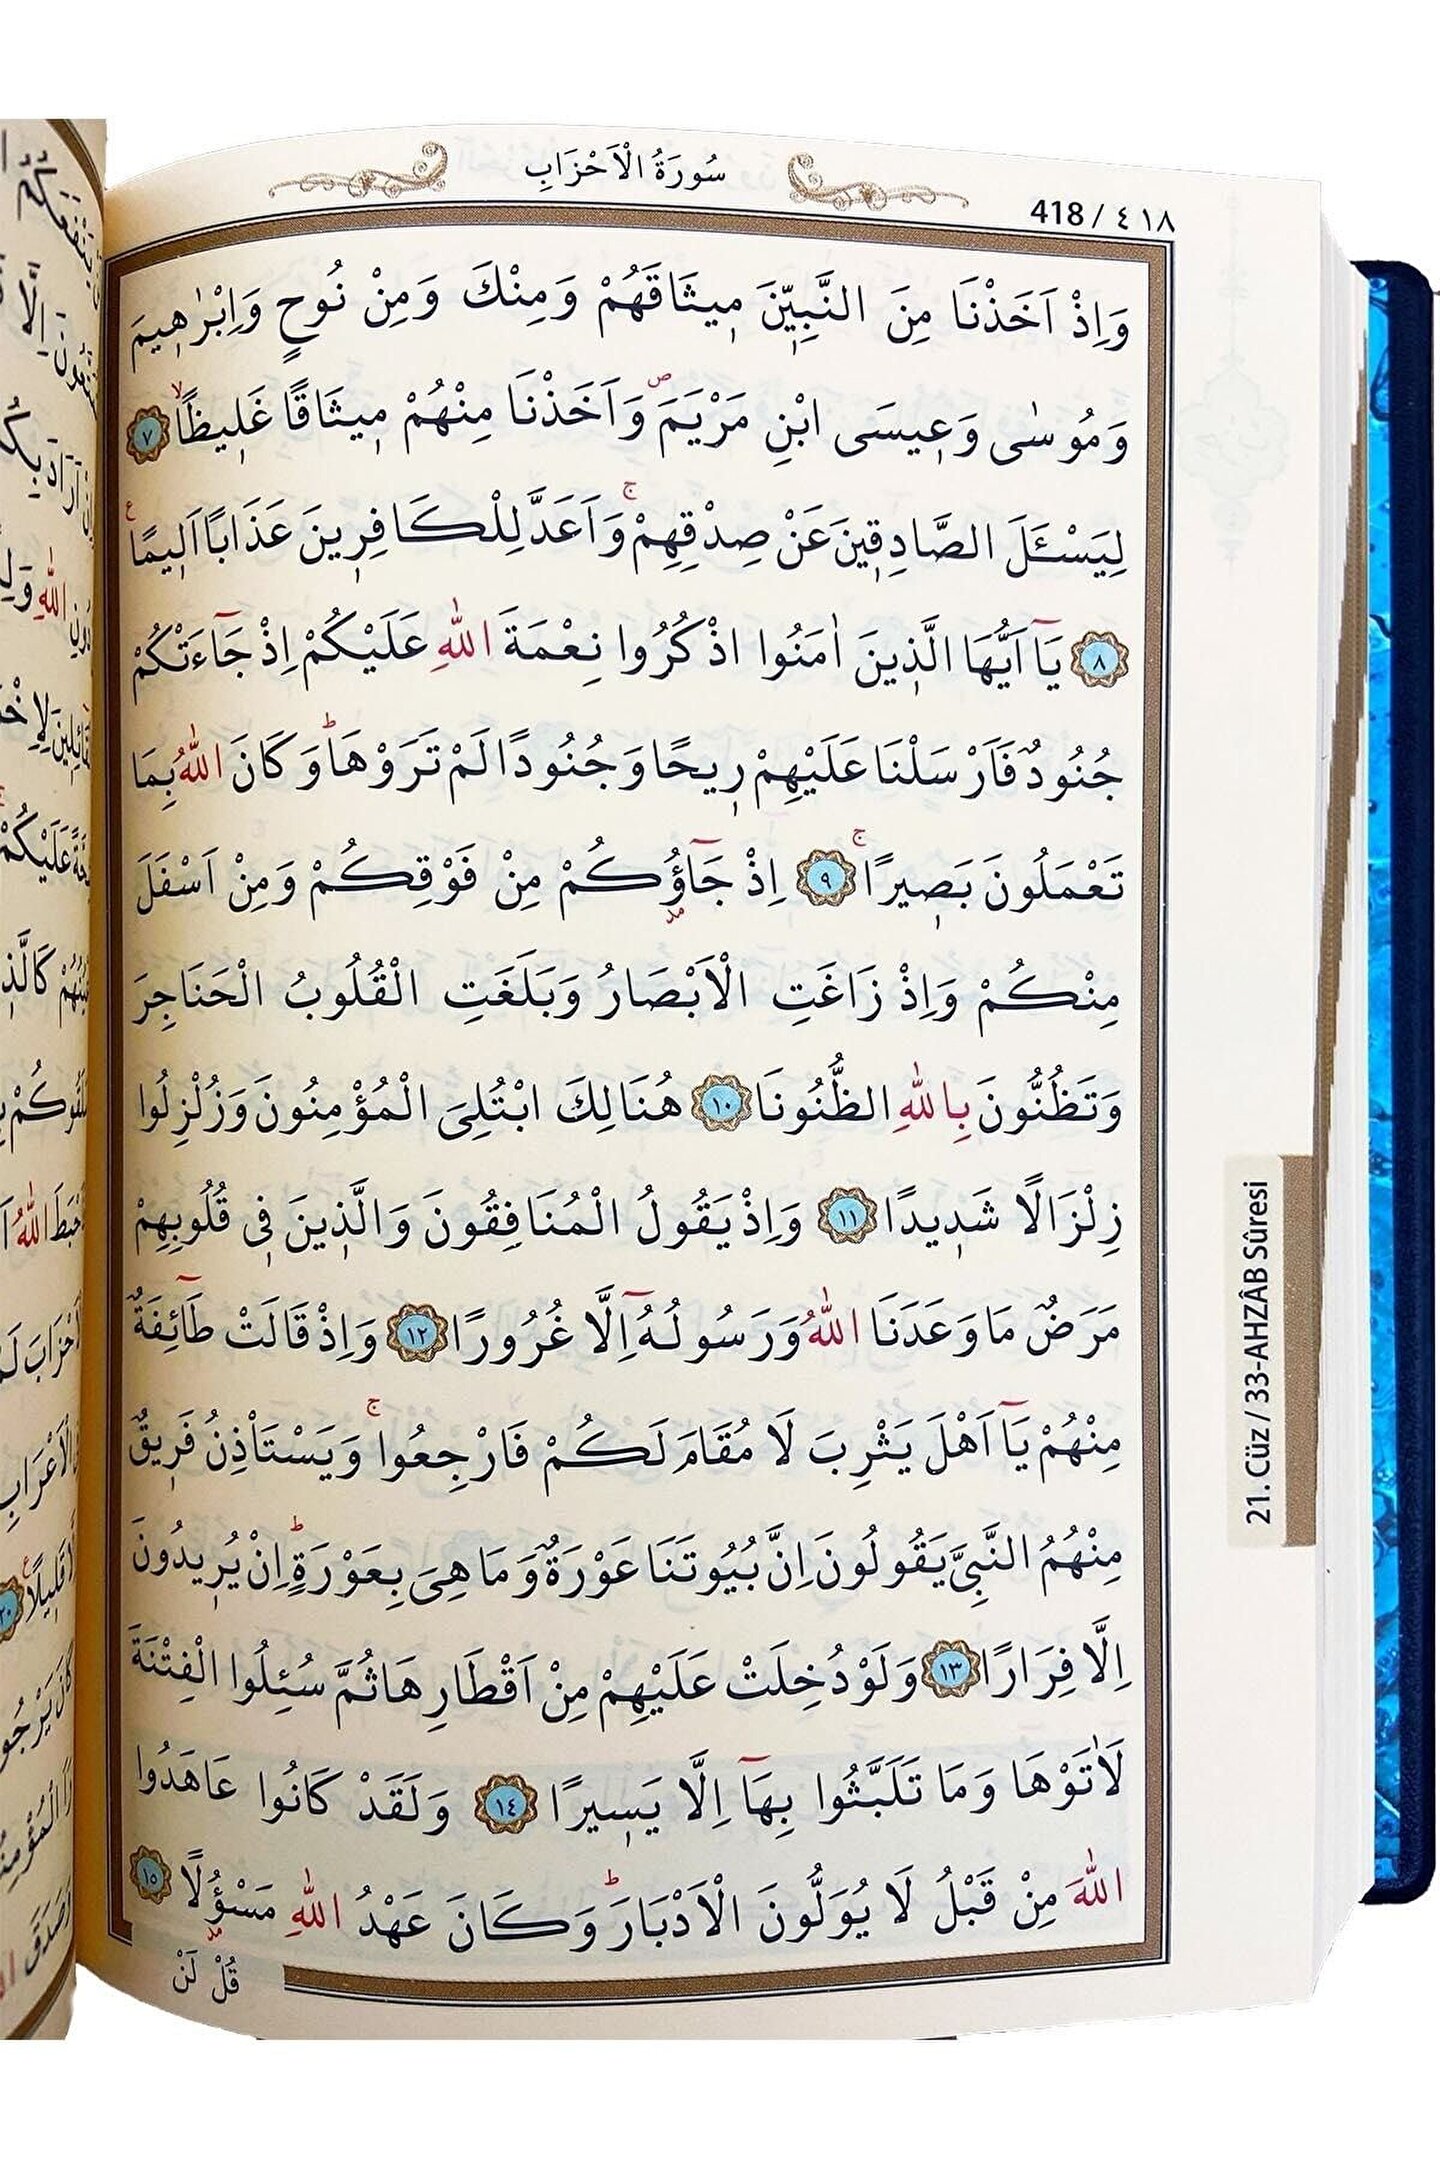 سُورَةُ الْاَحْزَابِ
418 / ٤١٨
وَاِذْ اَخَذْنَا مِنَ النَّبِيّٖنَ مٖيثَاقَهُمْ وَمِنْكَ وَمِنْ نُوحٍ وَاِبْرٰهٖيمَ
وَمُوسٰى وَعٖيسَى ابْنِ مَرْيَمَ وَاَخَذْنَا مِنْهُمْ مٖيثَاقًا غَلٖيظًا ﴿٧﴾
لِيَسْـَٔلَ الصَّادِقٖينَ عَنْ صِدْقِهِمْ وَاَعَدَّ لِلْكَافِرٖينَ عَذَابًا اَلٖيمًا
﴿٨﴾ يَٓا اَيُّهَا الَّذٖينَ اٰمَنُوا اذْكُرُوا نِعْمَةَ اللّٰهِ عَلَيْكُمْ اِذْ جَٓاءَتْكُمْ
جُنُودٌ فَاَرْسَلْنَا عَلَيْهِمْ رٖيحًا وَجُنُودًا لَمْ تَرَوْهَا وَكَانَ اللّٰهُ بِمَا
تَعْمَلُونَ بَصٖيرًا ﴿٩﴾ اِذْ جَٓاؤُكُمْ مِنْ فَوْقِكُمْ وَمِنْ اَسْفَلَ
مِنْكُمْ وَاِذْ زَاغَتِ الْاَبْصَارُ وَبَلَغَتِ الْقُلُوبُ الْحَنَاجِرَ
وَتَظُنُّونَ بِاللّٰهِ الظُّنُونَا ﴿١٠﴾ هُنَالِكَ ابْتُلِىَ الْمُؤْمِنُونَ وَزُلْزِلُوا
زِلْزَالًا شَدٖيدًا ﴿١١﴾ وَاِذْ يَقُولُ الْمُنَافِقُونَ وَالَّذٖينَ فٖى قُلُوبِهِمْ
مَرَضٌ مَا وَعَدَنَا اللّٰهُ وَرَسُولُهُٓ اِلَّا غُرُورًا ﴿١٢﴾ وَاِذْ قَالَتْ طَٓائِفَةٌ
مِنْهُمْ يَٓا اَهْلَ يَثْرِبَ لَا مُقَامَ لَكُمْ فَارْجِعُوا وَيَسْتَاْذِنُ فَرٖيقٌ
مِنْهُمُ النَّبِىَّ يَقُولُونَ اِنَّ بُيُوتَنَا عَوْرَةٌ وَمَا هِىَ بِعَوْرَةٍ اِنْ يُرٖيدُونَ
اِلَّا فِرَارًا ﴿١٣﴾ وَلَوْ دُخِلَتْ عَلَيْهِمْ مِنْ اَقْطَارِهَا ثُمَّ سُئِلُوا الْفِتْنَةَ
لَاٰتَوْهَا وَمَا تَلَبَّثُوا بِهَٓا اِلَّا يَسٖيرًا ﴿١٤﴾ وَلَقَدْ كَانُوا عَاهَدُوا
اللّٰهَ مِنْ قَبْلُ لَا يُوَلُّونَ الْاَدْبَارَ وَكَانَ عَهْدُ اللّٰهِ مَسْؤُلًا ﴿١٥﴾
قُلْ لَنْ
21. Cüz / 33-AHZÂB Sûresi